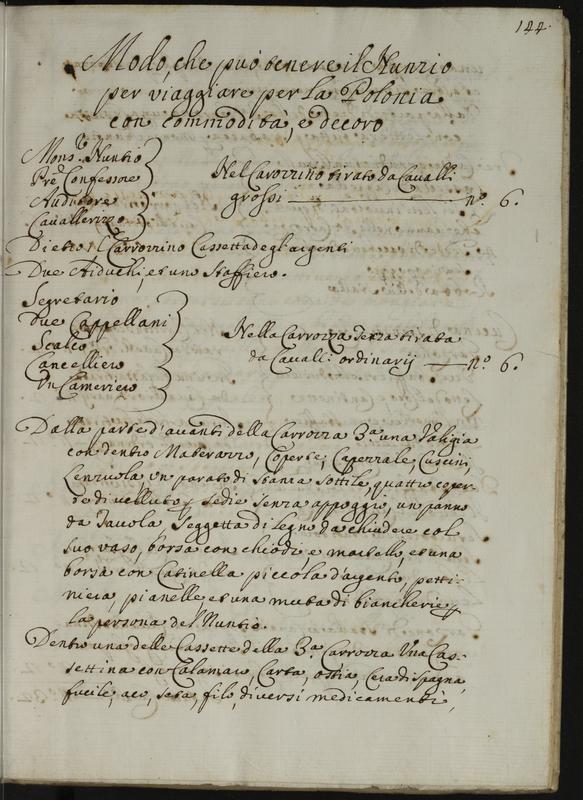 144.
Modo, che può tenere il Nunzio
per viaggiare per la Polonia
con commodità, e decoro
Mons.r Nuntio
Pre Confessore
Auditore
Cavallerizzo
Nel Carozzino tirato da Cavalli
grossi — n.o 6.
Dietro il Carrozzino Cassetta degl'argenti
Due Aiduchi, et uno Staffiero.
Segretario
due Cappellani
Scalco
Cancelliero
Un Cameriero
Nella Carrozza Terza tirata
da Cavalli ordinarij — n.o 6.
Dalla parte d'avanti della Carrozza 3.a una Valigia
con dentro Materazzo, Coperte, Capezzale, Cuscini,
Lenzuola un parato di stanza sottile, quattro coper-
te di velluto p sedie senza appoggio, un panno
da Tavola Seggetta di legno da chiudere col
suo vaso, borsa con chiodi, e martello, et una
borsa con Catinella piccola d'argento, petti-
niera, pianelle et una muta di biancherie p
la persona del Nuntio.
Dentro una delle Cassette della 3.a Carrozza Una Cas-
settina con Calamaro, Carta, ostia, Cera di spagna,
fucile, aco, seta, filo, diversi medicamenti,